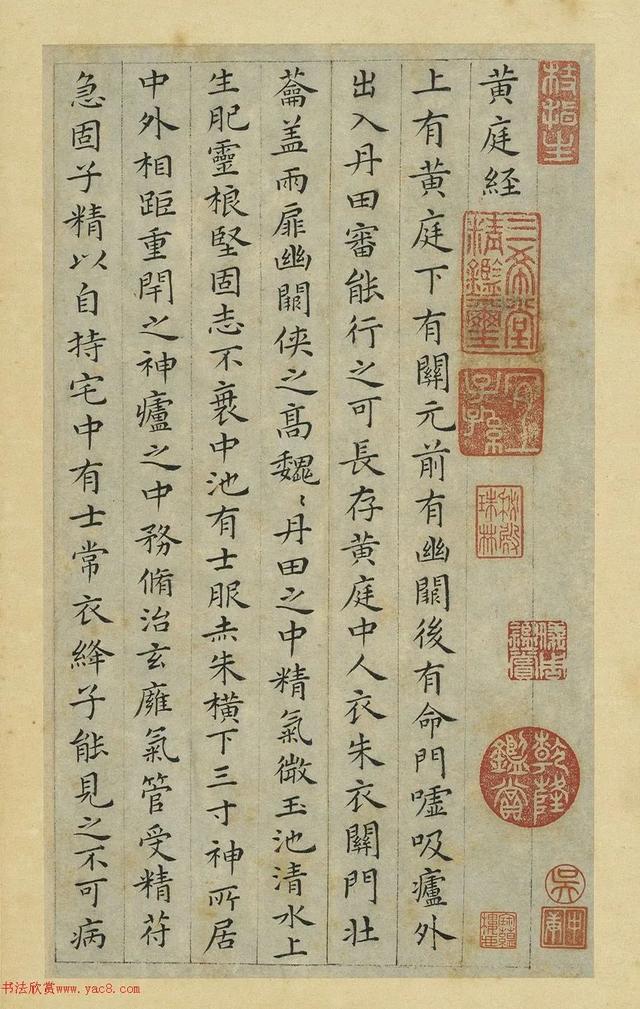 黄庭経
上有黄庭下有關元前有幽闕後有命門噓吸廬外
出入丹田審能行之可長存黄庭中人衣朱衣關門壮
蘥盖兩扉幽闕侠之髙巍〻丹田之中精氣微玉池清水上
生肥靈根堅固志不衰中池有士服赤朱横下三寸神所居
中外相距重閇之神廬之中務脩治玄廱氣管受精苻
急固子精以自持宅中有士常衣絳子能見之不可病
枝指生
三希堂精鑑璽
宜子孫
秋殿珠林
乾隆鑑賞
吳
书法欣赏www.yac8.com